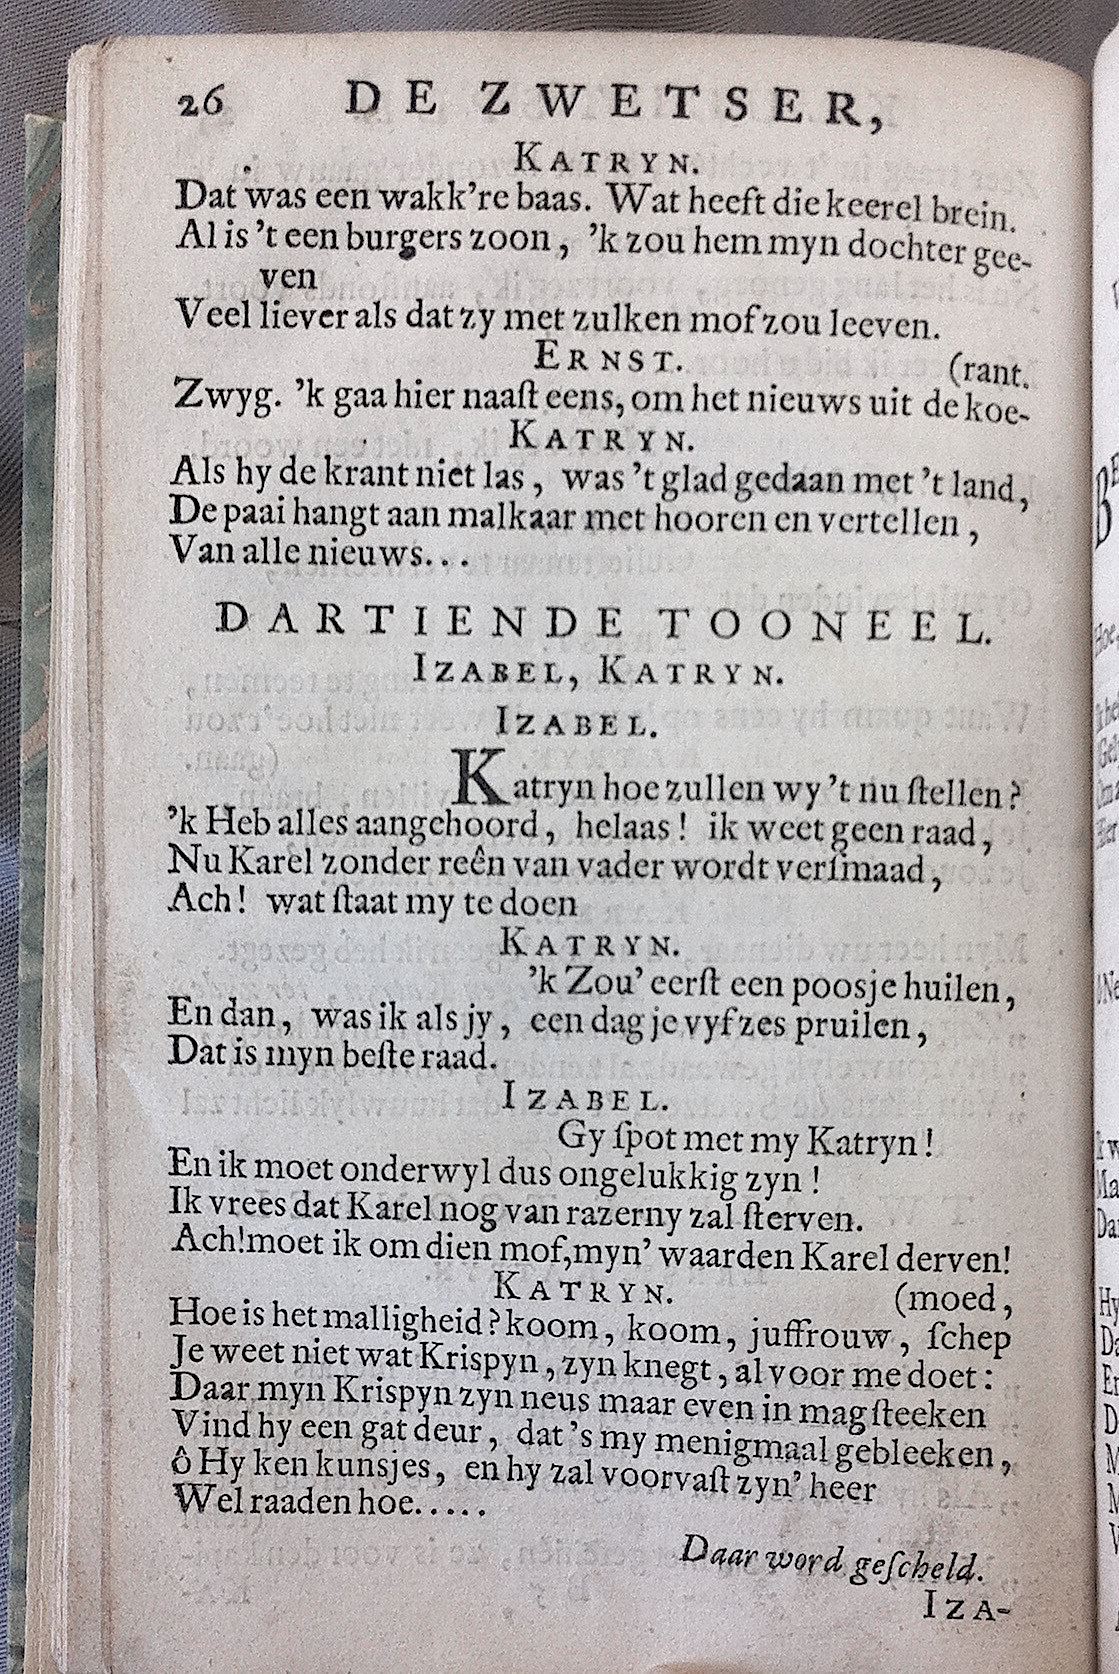 26 DE ZWETSER,
KATRYN.
Dat was een wakk're baas. Wat heeft die keerel brein.
Al is 't een burgers zoon, 'k zou hem myn dochter gee-
ven
Veel liever als dat zy met zulken mof zou leeven.
ERNST. (rant.
Zwyg. 'k gaa hier naaſt eens, om het nieuws uit de koe-
KATRYN.
Als hy de krant niet las, was 't glad gedaan met 't land,
De paai hangt aan malkaar met hooren en vertellen,
Van alle nieuws...
DARTIENDE TOONEEL.
IZABEL, KATRYN.
IZABEL.
Katryn hoe zullen wy 't nu ſtellen?
'k Heb alles aangehoord, helaas! ik weet geen raad,
Nu Karel zonder reên van vader wordt verſmaad,
Ach! wat ſtaat my te doen
KATRYN.
'k Zou' eerſt een poosje huilen,
En dan, was ik als jy, een dag je vyf zes pruilen,
Dat is myn beſte raad.
IZABEL.
Gy ſpot met my Katryn!
En ik moet onderwyl dus ongelukkig zyn!
Ik vrees dat Karel nog van razerny zal ſterven.
Ach! moet ik om dien mof, myn' waarden Karel derven!
KATRYN. (moed,
Hoe is het malligheid? koom, koom, juffrouw, ſchep
Je weet niet wat Krispyn, zyn knegt, al voor me doet:
Daar myn Krispyn zyn neus maar even in mag ſteeken
Vind hy een gat deur, dat 's my menigmaal gebleeken,
ô Hy ken kunsjes, en hy zal voorvaſt zyn' heer
Wel raaden hoe.....
Daar word geſcheld.
IZA-